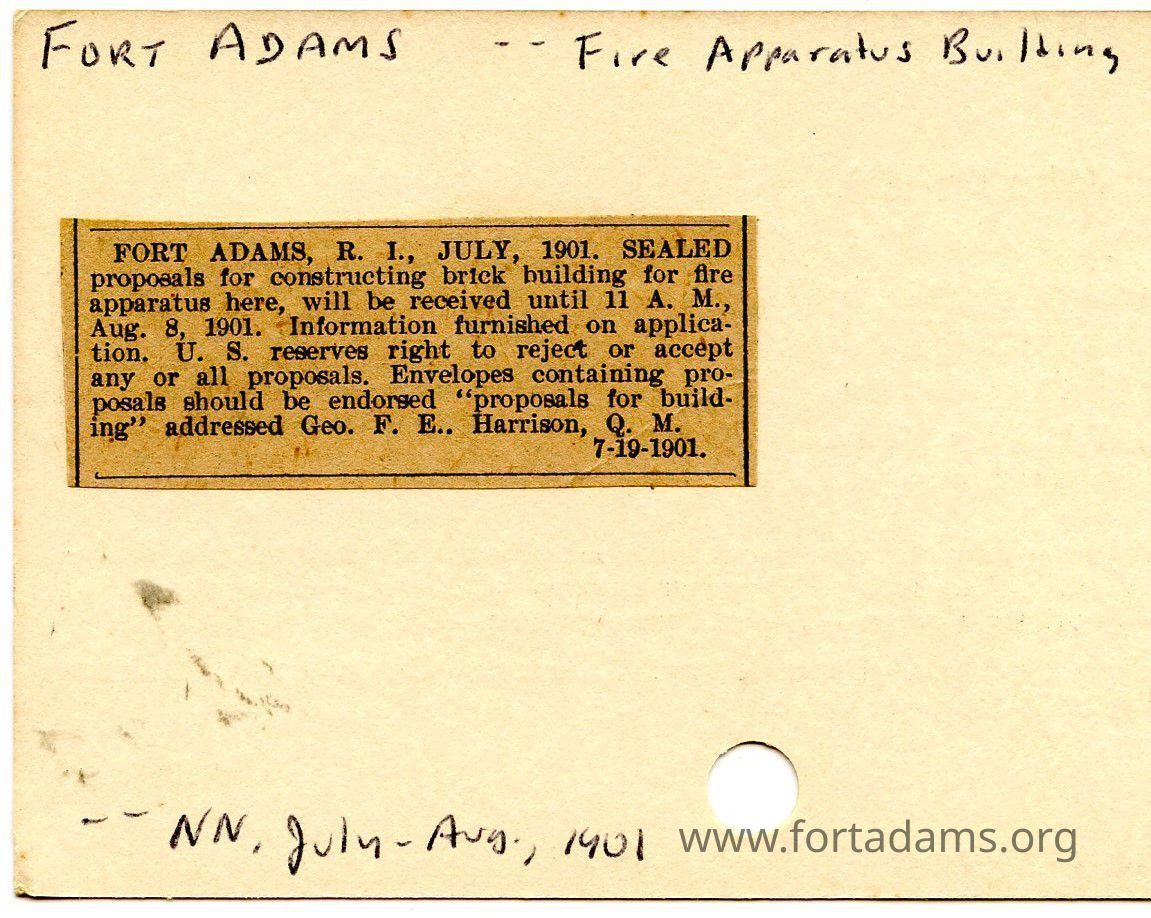 FORT ADAMS -- Fire Apparatus Building
FORT ADAMS, R. I., JULY, 1901. SEALED
proposals for constructing brick building for fire
apparatus here, will be received until 11 A. M.,
Aug. 8, 1901. Information furnished on applica-
tion. U. S. reserves right to reject or accept
any or all proposals. Envelopes containing pro-
posals should be endorsed “proposals for build-
ing” addressed Geo. F. E.. Harrison, Q. M.
7-19-1901.
-- NN, July-Aug., 1901
www.fortadams.org